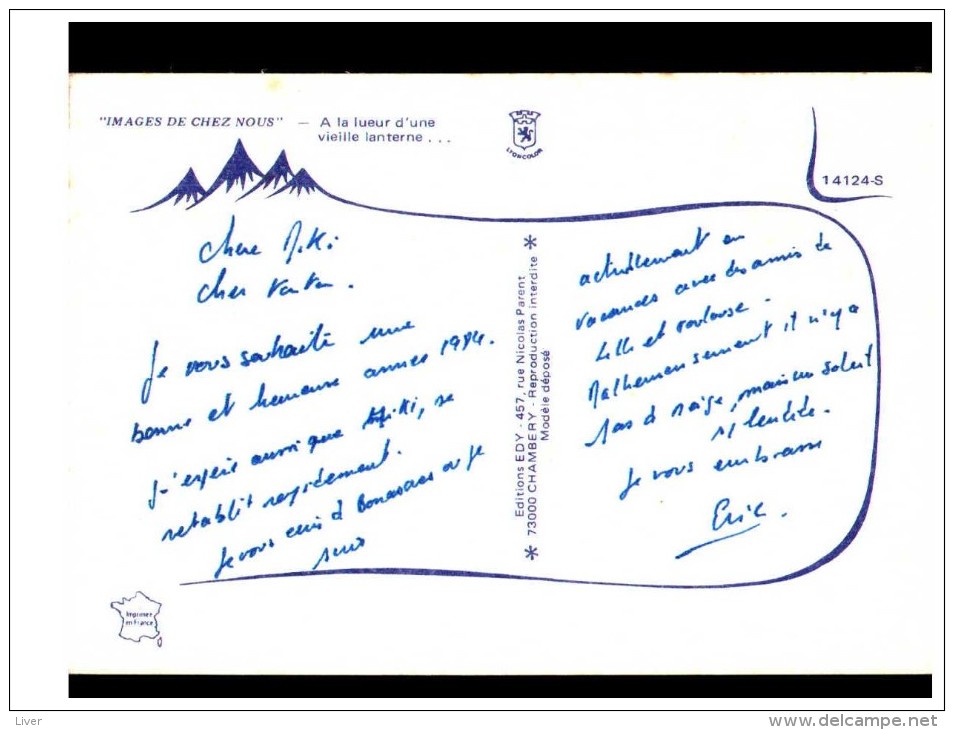 "IMAGES DE CHEZ NOUS" — A la lueur d'une
vieille lanterne . . .
LYONCOLOR
14124-S
Chere Miki
Cher
Je vous souhaite une
bonne et heureuse annee 1984.
J'espère aussi que Miki, se
retablit rapidement.
Je vous ecris d ou je
suis
Editions EDY - 457, rue Nicolas Parent
73000 CHAMBERY - Reproduction interdite
Modèle déposé
actuellement en
vacances avec des amis de
Lille et Toulouse.
Malheureusement il n'y a
pas d neige, mais un soleil
splendide.
Je vous embrasse
Eric.
Imprimer
en France
Liver
www.delcampe.net